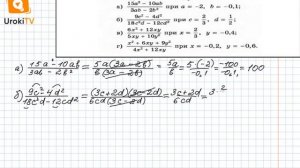 UrokiTV
а) 15a² − 10ab / 3ab − 2b² при a = −2, b = −0,1;
б) 9c² − 4d² / 18c²d − 12cd² при
в) 6x² + 12xy / 5xy + 10y² при
г) x² + 6xy + 9y² / 4x² + 12xy при x = −0,2, y = −0,6.
а) 15a² − 10ab / 3ab − 2b² = 5a(3a − 2b) / b(3a − 2b) = 5a / b = 5·(−2) / −0,1 = −10 / −0,1 = 100
б) 9c² − 4d² / 18c²d − 12cd² = (3c+2d)(3c−2d) / 6cd(3c−2d) = 3c+2d / 6cd = 3·2